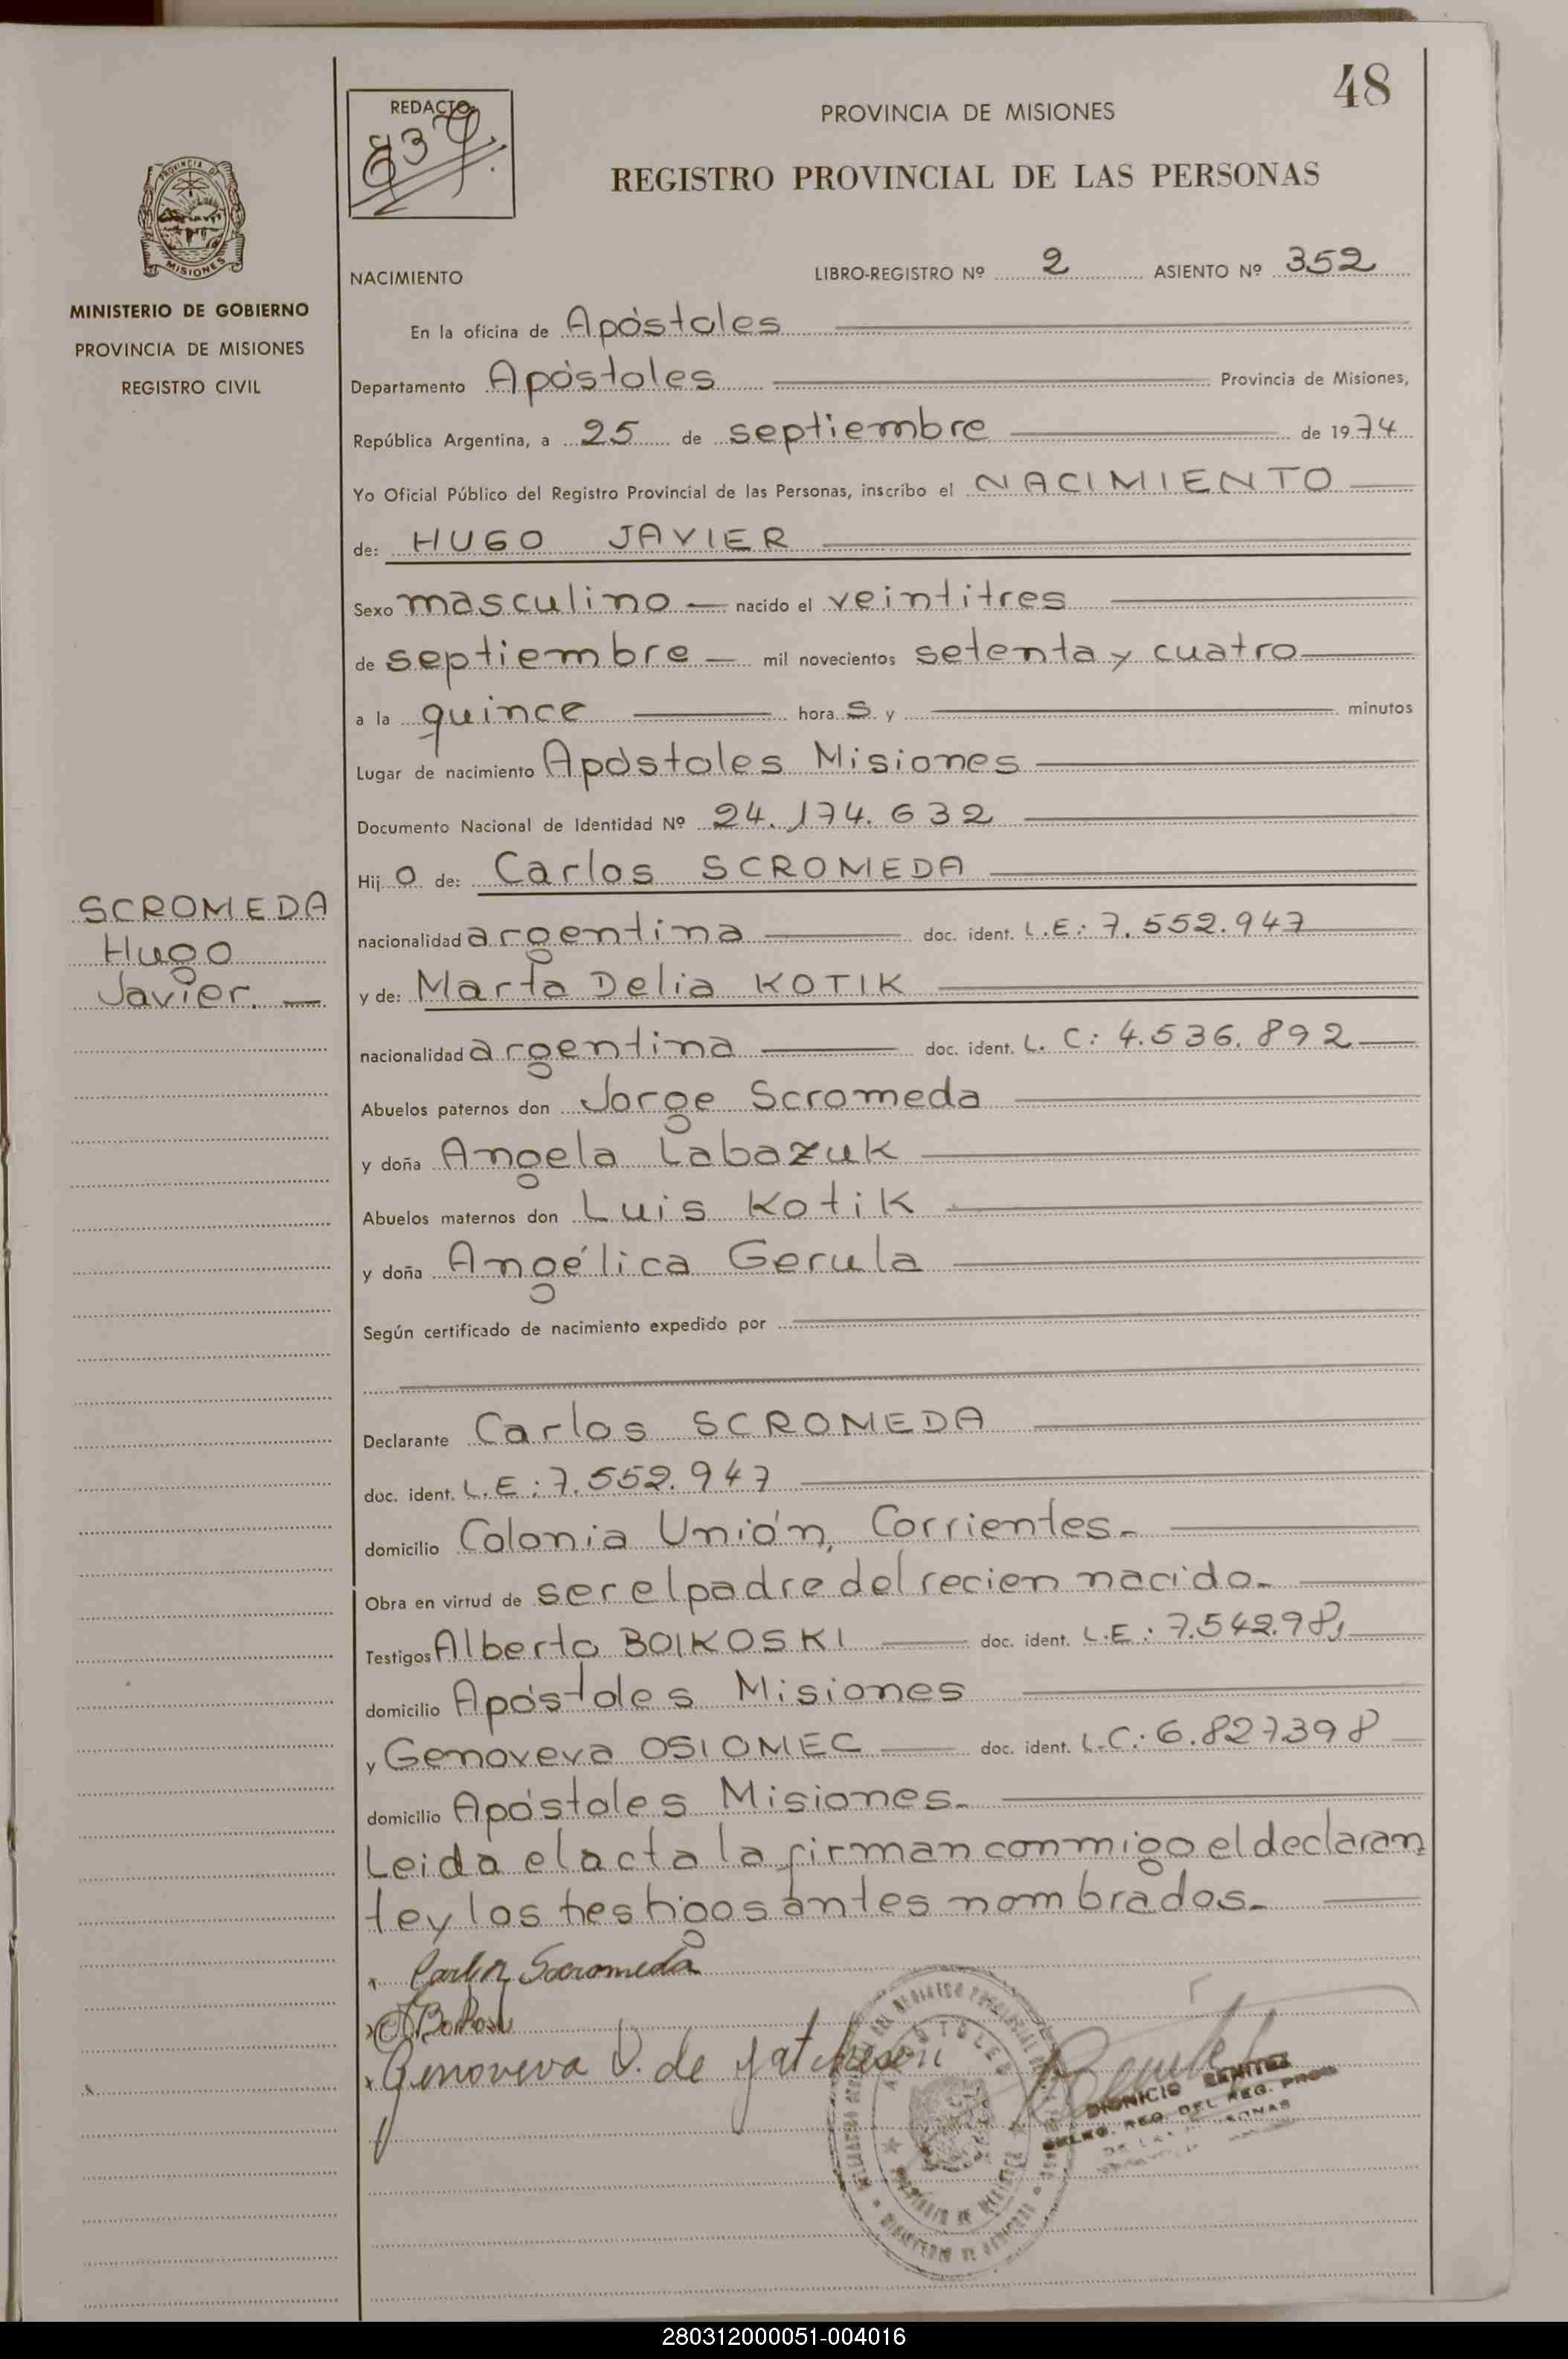 48
REDACTO
PROVINCIA DE MISIONES
REGISTRO PROVINCIAL DE LAS PERSONAS
MISIONES
MINISTERIO DE GOBIERNO
PROVINCIA DE MISIONES
REGISTRO CIVIL
NACIMIENTO LIBRO-REGISTRO Nº 2 ASIENTO Nº 352
En la oficina de Apóstoles
Departamento Apóstoles Provincia de Misiones,
República Argentina, a 25 de septiembre de 1974
Yo Oficial Público del Registro Provincial de las Personas, inscribo el NACIMIENTO
de: HUGO JAVIER
Sexo masculino nacido el veintitres
de septiembre mil novecientos setenta y cuatro
a la quince hora s y minutos
Lugar de nacimiento Apóstoles Misiones
Documento Nacional de Identidad Nº 24.174.632
Hij o de: Carlos SCROMEDA
SCROMEDA
Hugo
Javier.
nacionalidad argentina doc. ident. L.E: 7.552.947
y de: Marta Delia KOTIK
nacionalidad argentina doc. ident. L. C: 4.536.892
Abuelos paternos don Jorge Scromeda
y doña Angela Labazuk
Abuelos maternos don Luis Kotik
y doña Angélica Gerula
Según certificado de nacimiento expedido por
Declarante Carlos SCROMEDA
doc. ident. L.E: 7.552.947
domicilio Colonia Unión, Corrientes.
Obra en virtud de ser el padre del recien nacido.
Testigos Alberto BOIKOSKI doc. ident. L.E: 7.542.981
domicilio Apóstoles Misiones
y Genoveva OSIOMEC doc. ident. L.C: 6.827.398
domicilio Apóstoles Misiones.
Leida el acta la firman conmigo el declaran
te y los testigos antes nombrados.
Carlos Scromeda
Genoveva O. de
APOSTOLES
DIONICIO BENITEZ
DELEG. REG. DEL REG. PROV.
DE LAS PERSONAS
280312000051-004016